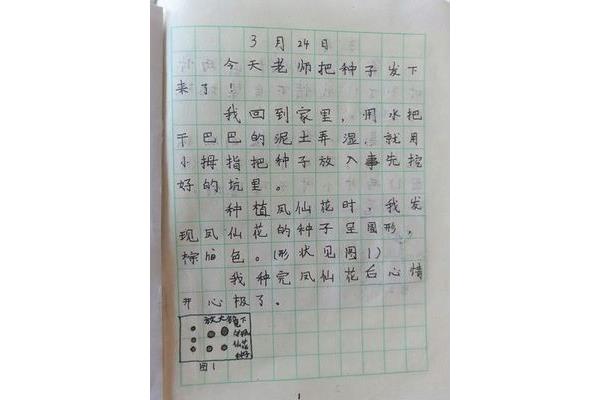 3月24日
今天老师把种子发下
来了！
我回到家里，用水把
干巴巴的泥土弄湿，就用
小拇指把种子放入事先挖
好的坑里。
种植凤仙花时，我发
现凤仙花的种子呈圆形，
棕色。(形状见图1)
我种完凤仙花后心情
开心极了。
放大镜下
凤仙花
种子
图1
1